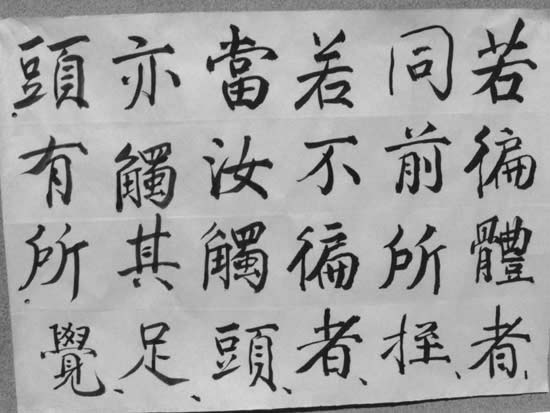 若徧體者、
同前所挃、
若不徧者、
當汝觸頭、
亦觸其足、
頭有所覺、